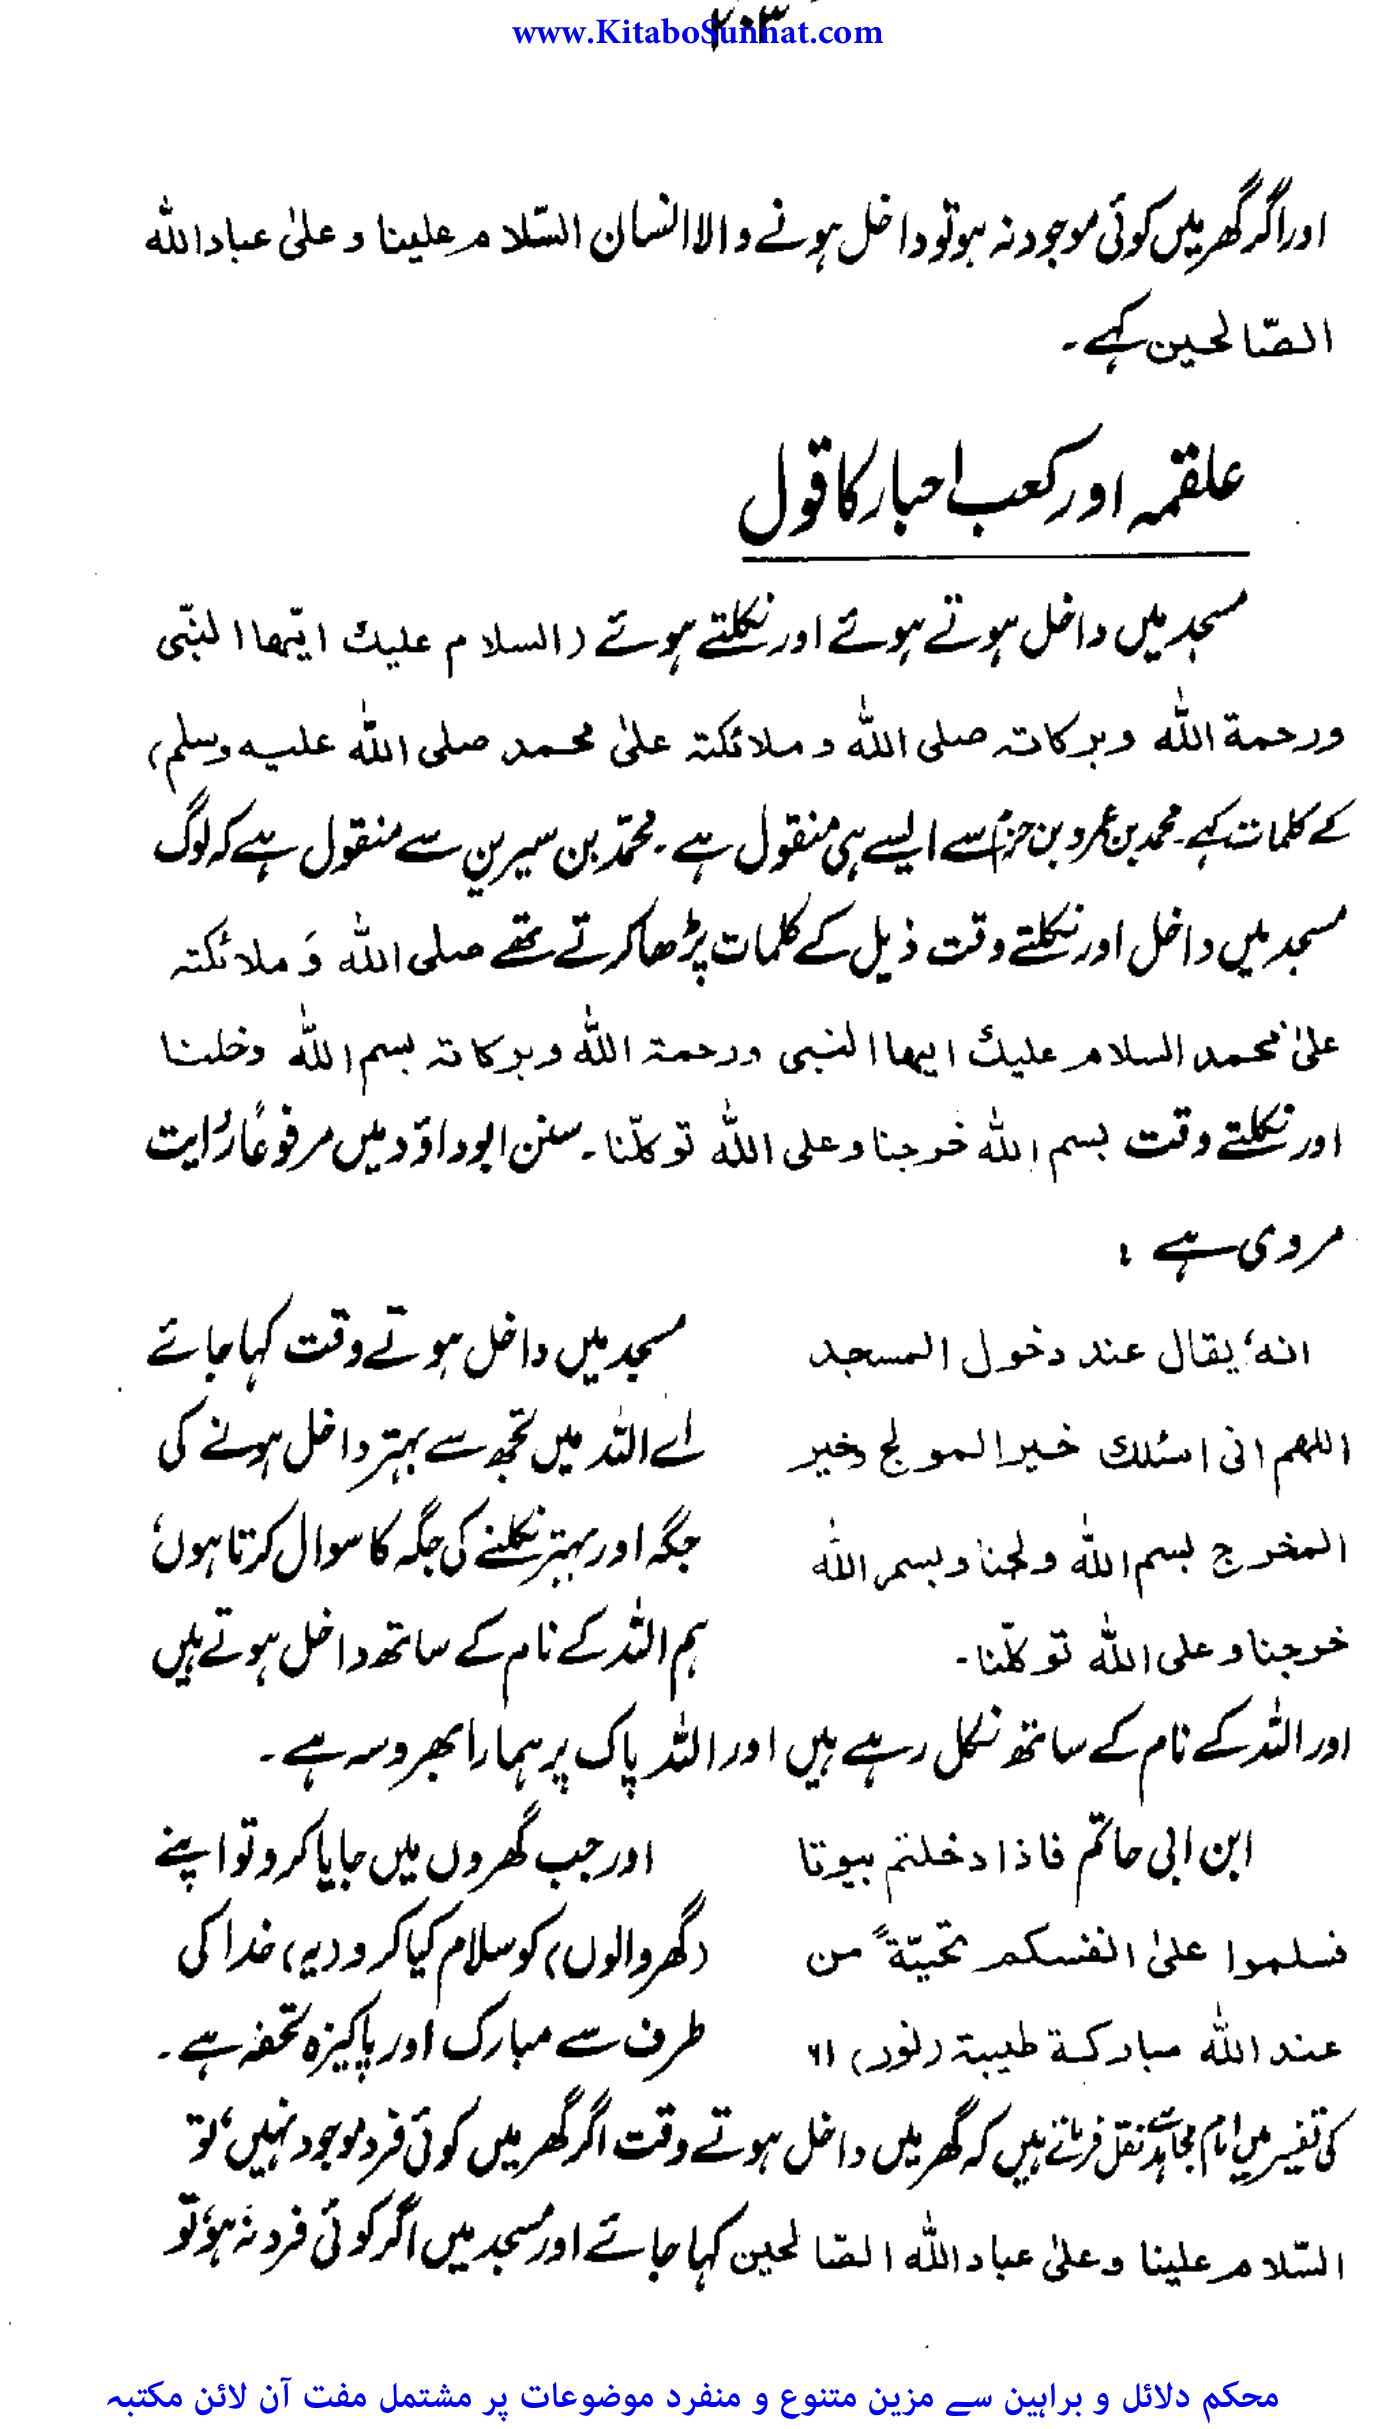 ۲۰۳
www.KitaboSunnat.com
اور اگر گھر میں کوئی موجود نہ ہو تو داخل ہونے والا انسان السّلام علینا و علیٰ عباد اللہ
الصّالحین کہے۔
علقمہ اور کعب احبار کا قول
مسجد میں داخل ہوتے ہوئے اور نکلتے ہوئے (السلام علیك ایّھا النبّی
ورحمة اللہ وبرکاتہ صلی اللہ و ملائکتہ علیٰ محمد صلی اللہ علیہ وسلم)
کے کلمات کہے۔ محمد بن عمرو بن حزم سے ایسے ہی منقول ہے۔ محمّد بن سیرین سے منقول ہے کہ لوگ
مسجد میں داخل اور نکلتے وقت ذیل کے کلمات پڑھا کرتے تھے صلی اللہ وَ ملائکتہ
علیٰ محمد السلام علیك ایھا النبی ورحمة اللہ وبرکاتہ بسم اللہ دخلنا
اور نکلتے وقت بسم اللہ خرجنا وعلی اللہ توکلّنا۔ سنن ابوداؤد میں مرفوعًا روایت
مروی ہے :
انہ، یقال عند دخول المسجد مسجد میں داخل ہوتے وقت کہا جائے
اللھم انی اسئلك خیر المولج وخیر اے اللہ میں تجھ سے بہتر داخل ہونے کی
المخرج بسم اللہ ولجنا وبسم اللہ جگہ اور بہتر نکلنے کی جگہ کا سوال کرتا ہوں،
خرجنا وعلی اللہ توکلّنا۔ ہم اللہ کے نام کے ساتھ داخل ہوتے ہیں
اور اللہ کے نام کے ساتھ نکل رہے ہیں اور اللہ پاک پر ہمارا بھروسہ ہے۔
ابن ابی حاتم فاذا دخلتم بیوتا اور جب گھروں میں جایا کرو تو اپنے
فسلموا علیٰ انفسکم تحیّةً من (گھر والوں) کو سلام کیا کرو (یہ) خدا کی
عند اللہ مبارکة طیبة (نور) ۶۱ طرف سے مبارک اور پاکیزہ تحفہ ہے۔
کی تفسیر میں امام مجاہد سے نقل فرماتے ہیں کہ گھر میں داخل ہوتے وقت اگر گھر میں کوئی فرد موجود نہیں، تو
السّلام علینا وعلیٰ عباد اللہ الصّالحین کہا جائے اور مسجد میں اگر کوئی فرد نہ ہو، تو
محکم دلائل و براہین سے مزین متنوع و منفرد موضوعات پر مشتمل مفت آن لائن مکتبہ